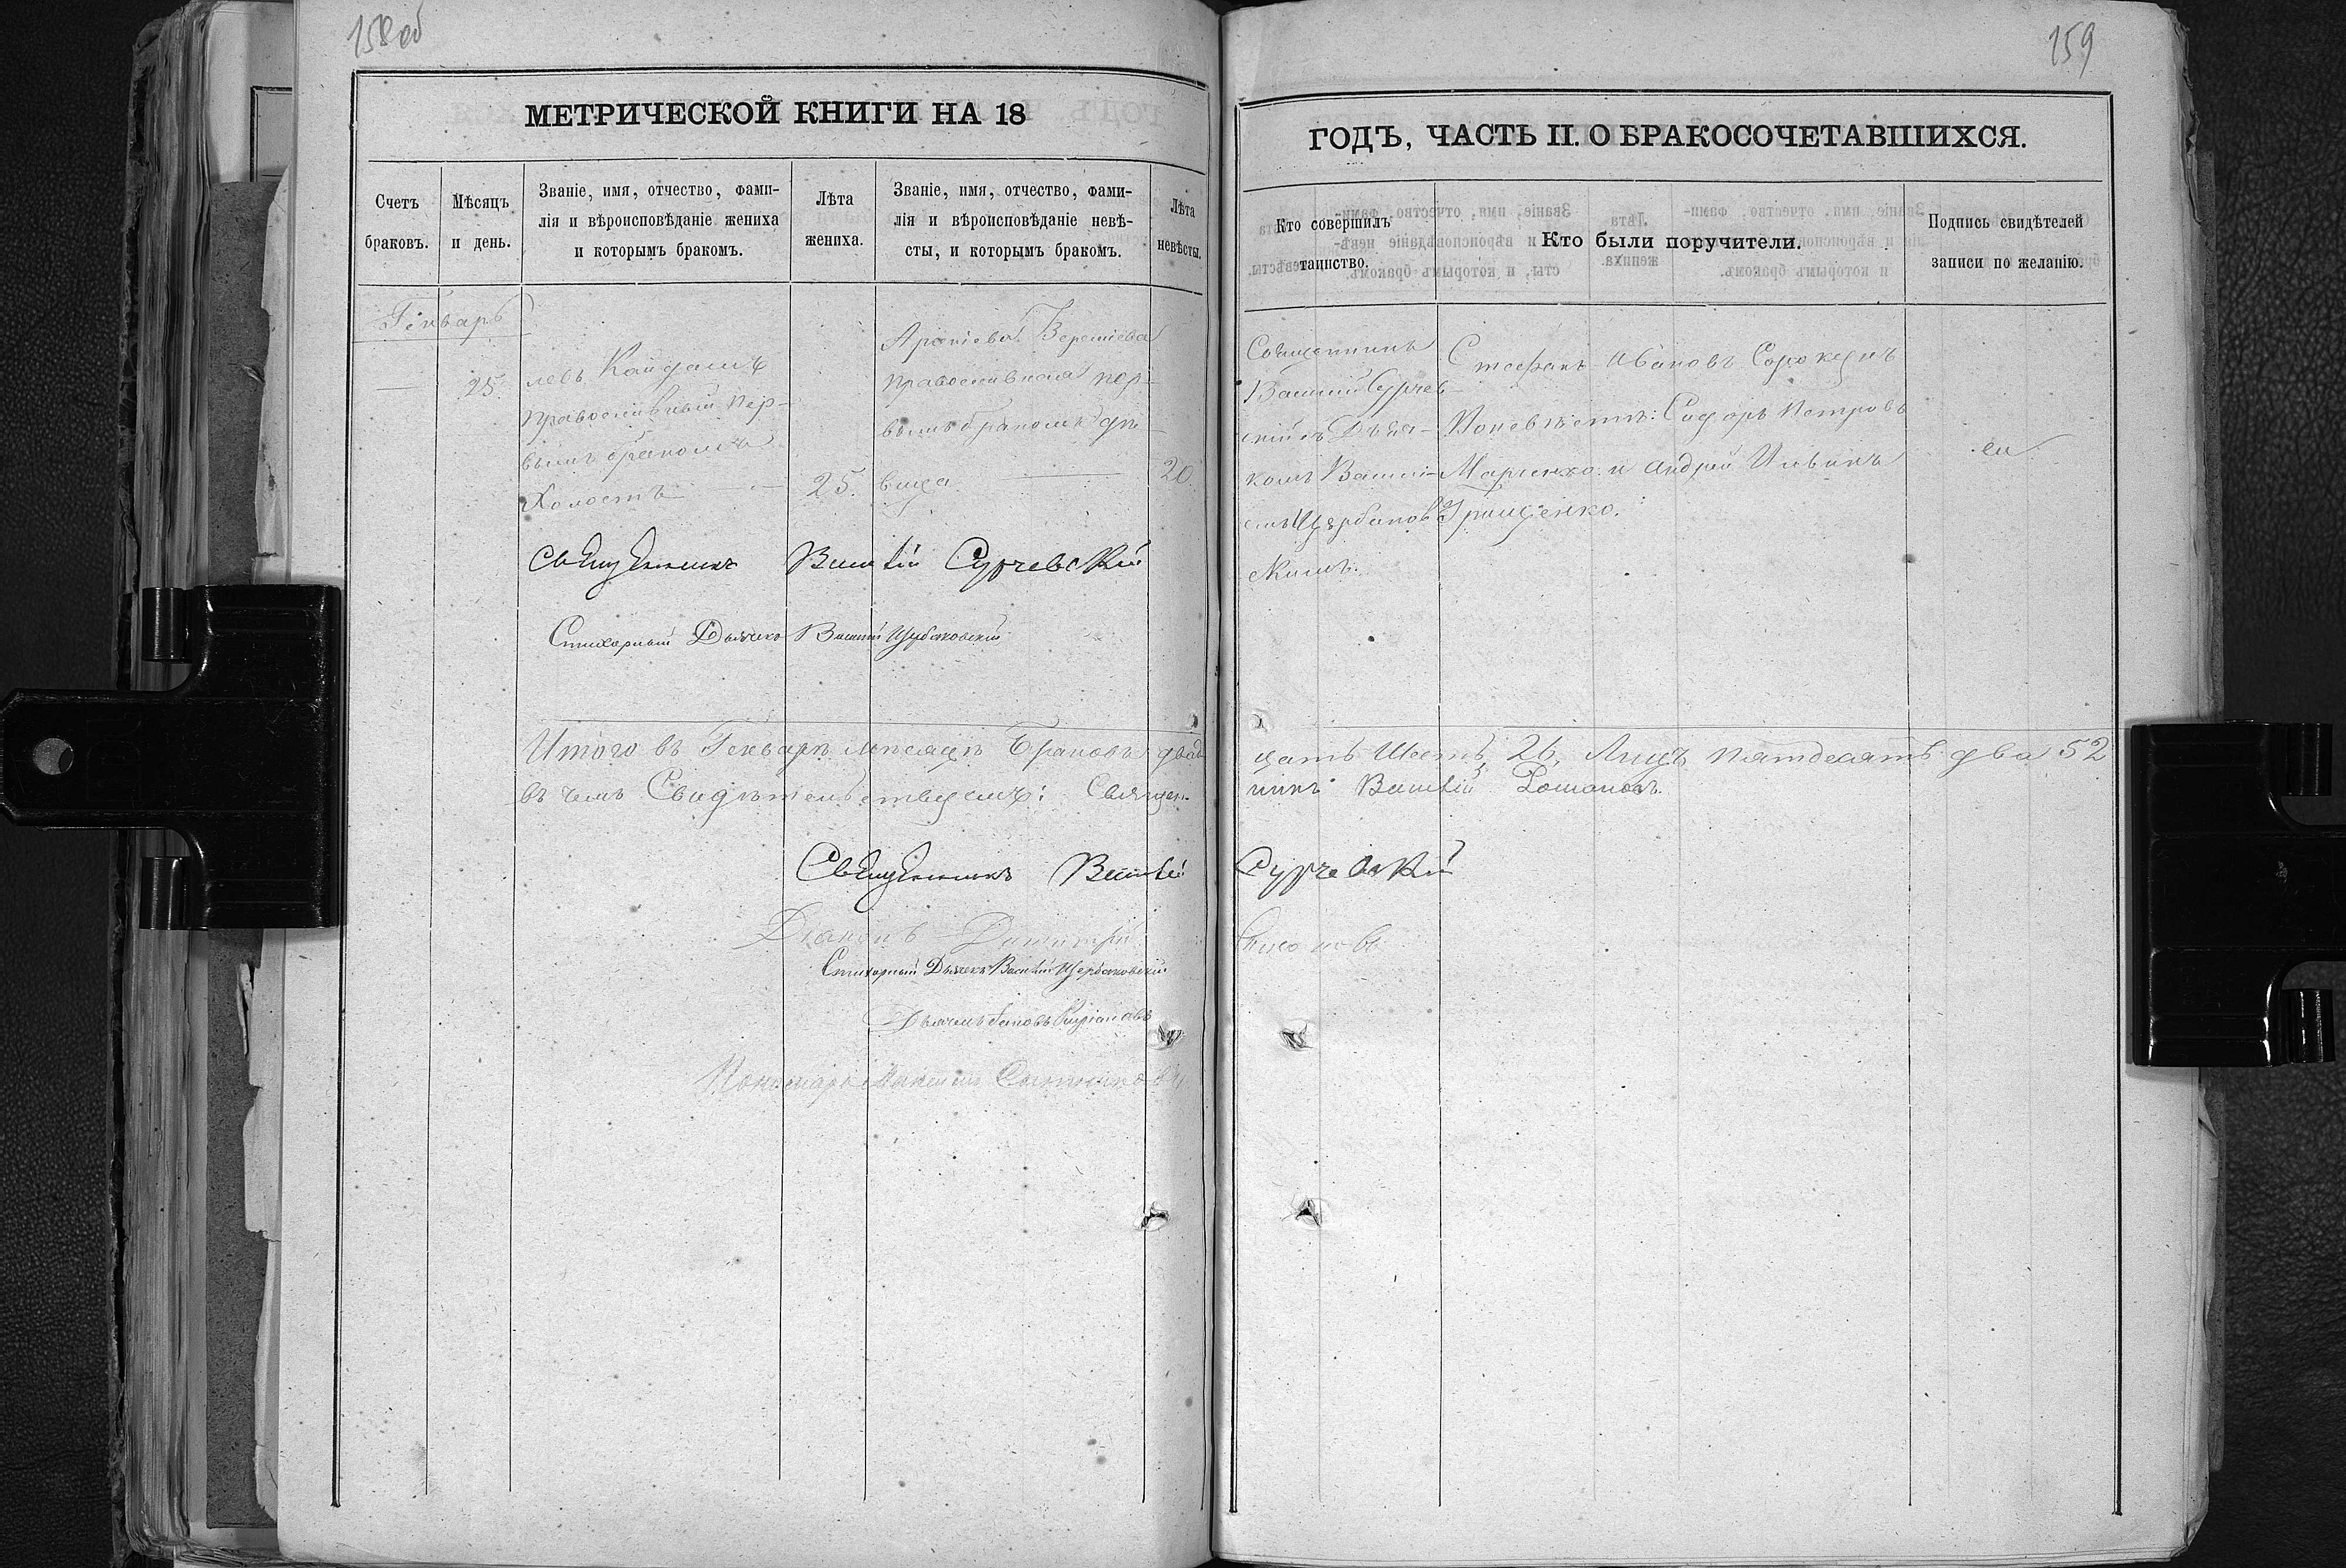 158 об
МЕТРИЧЕСКОЙ КНИГИ НА 18
Счетъ браковъ.
Мѣсяцъ и день.
Званіе, имя, отчество, фами-
лія и вѣроисповѣданіе жениха
и которымъ бракомъ.
Лѣта
жениха.
Званіе, имя, отчество, фами-
лія и вѣроисповѣданіе невѣ-
сты, и которымъ бракомъ.
Лѣта
невѣсты.
Генварь
25.
левъ Кайдашъ
православный пер-
вымъ бракомъ
Холостъ
25.
православная пер-
вымъ бракомъ дѣ-
вица
20.
Священникъ Василій Сурчевскій
Стихарный Дьячекъ Василій Щербаковскій
Итого въ Генварѣ мѣсяцѣ браковъ двад
въ чемъ Свидѣтельствуемъ: Священ-
Священникъ Василій
Діаконъ Димитрій
Стихарный Дьячекъ Василій Щербаковскій
Пономарь
159
ГОДЪ, ЧАСТЬ II. О БРАКОСОЧЕТАВШИХСЯ.
Кто совершилъ
таинство.
Кто были поручители.
Подпись свидѣтелей
записи по желанію.
Священникъ
Василій Сурчев-
скій съ Дьяч-
комъ Василі-
емъ Щербаков
скимъ.
Стефанъ Ивановъ Сорокунъ
По невѣстѣ: Сидоръ Петровъ
Марченко и Андрей Ильинъ
Грищенко.
цать шесть, 26, Лицъ пятдесятъ два 52
никъ Василій Романовъ
Сурчевскій